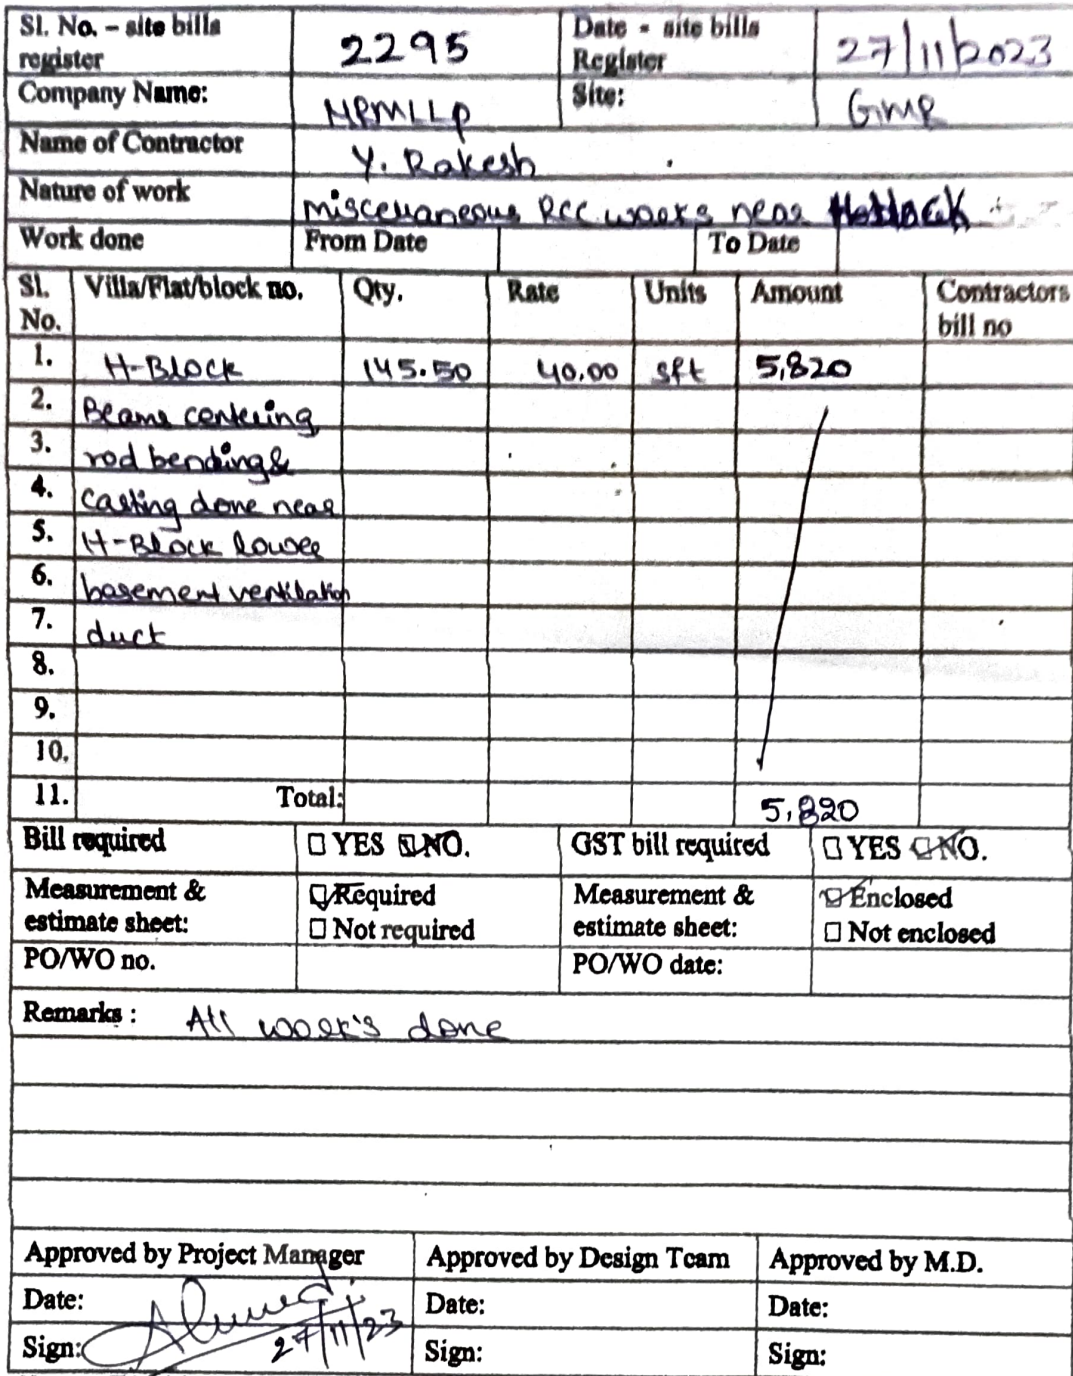 Sl. No. – site bills register 2295 Date - site bills Register 27/11/2023
Company Name: MPMLLP Site: GMR
Name of Contractor Y. Rakesh
Nature of work miscellaneous RCC works near H-Block
Work done From Date To Date
Sl. No. Villa/Flat/block no. Qty. Rate Units Amount Contractors bill no
1. H-Block 145.50 40.00 sft 5,820
2. Beams centering
3. rod bending &
4. casting done near
5. H-Block lower
6. basement ventilation
7. duct
8.
9.
10.
11. Total: 5,820
Bill required YES NO. GST bill required YES NO.
Measurement & estimate sheet: Required Not required Measurement & estimate sheet: Enclosed Not enclosed
PO/WO no. PO/WO date:
Remarks : All work's done
Approved by Project Manager Approved by Design Team Approved by M.D.
Date: Date: Date:
Sign: 27/11/23 Sign: Sign: